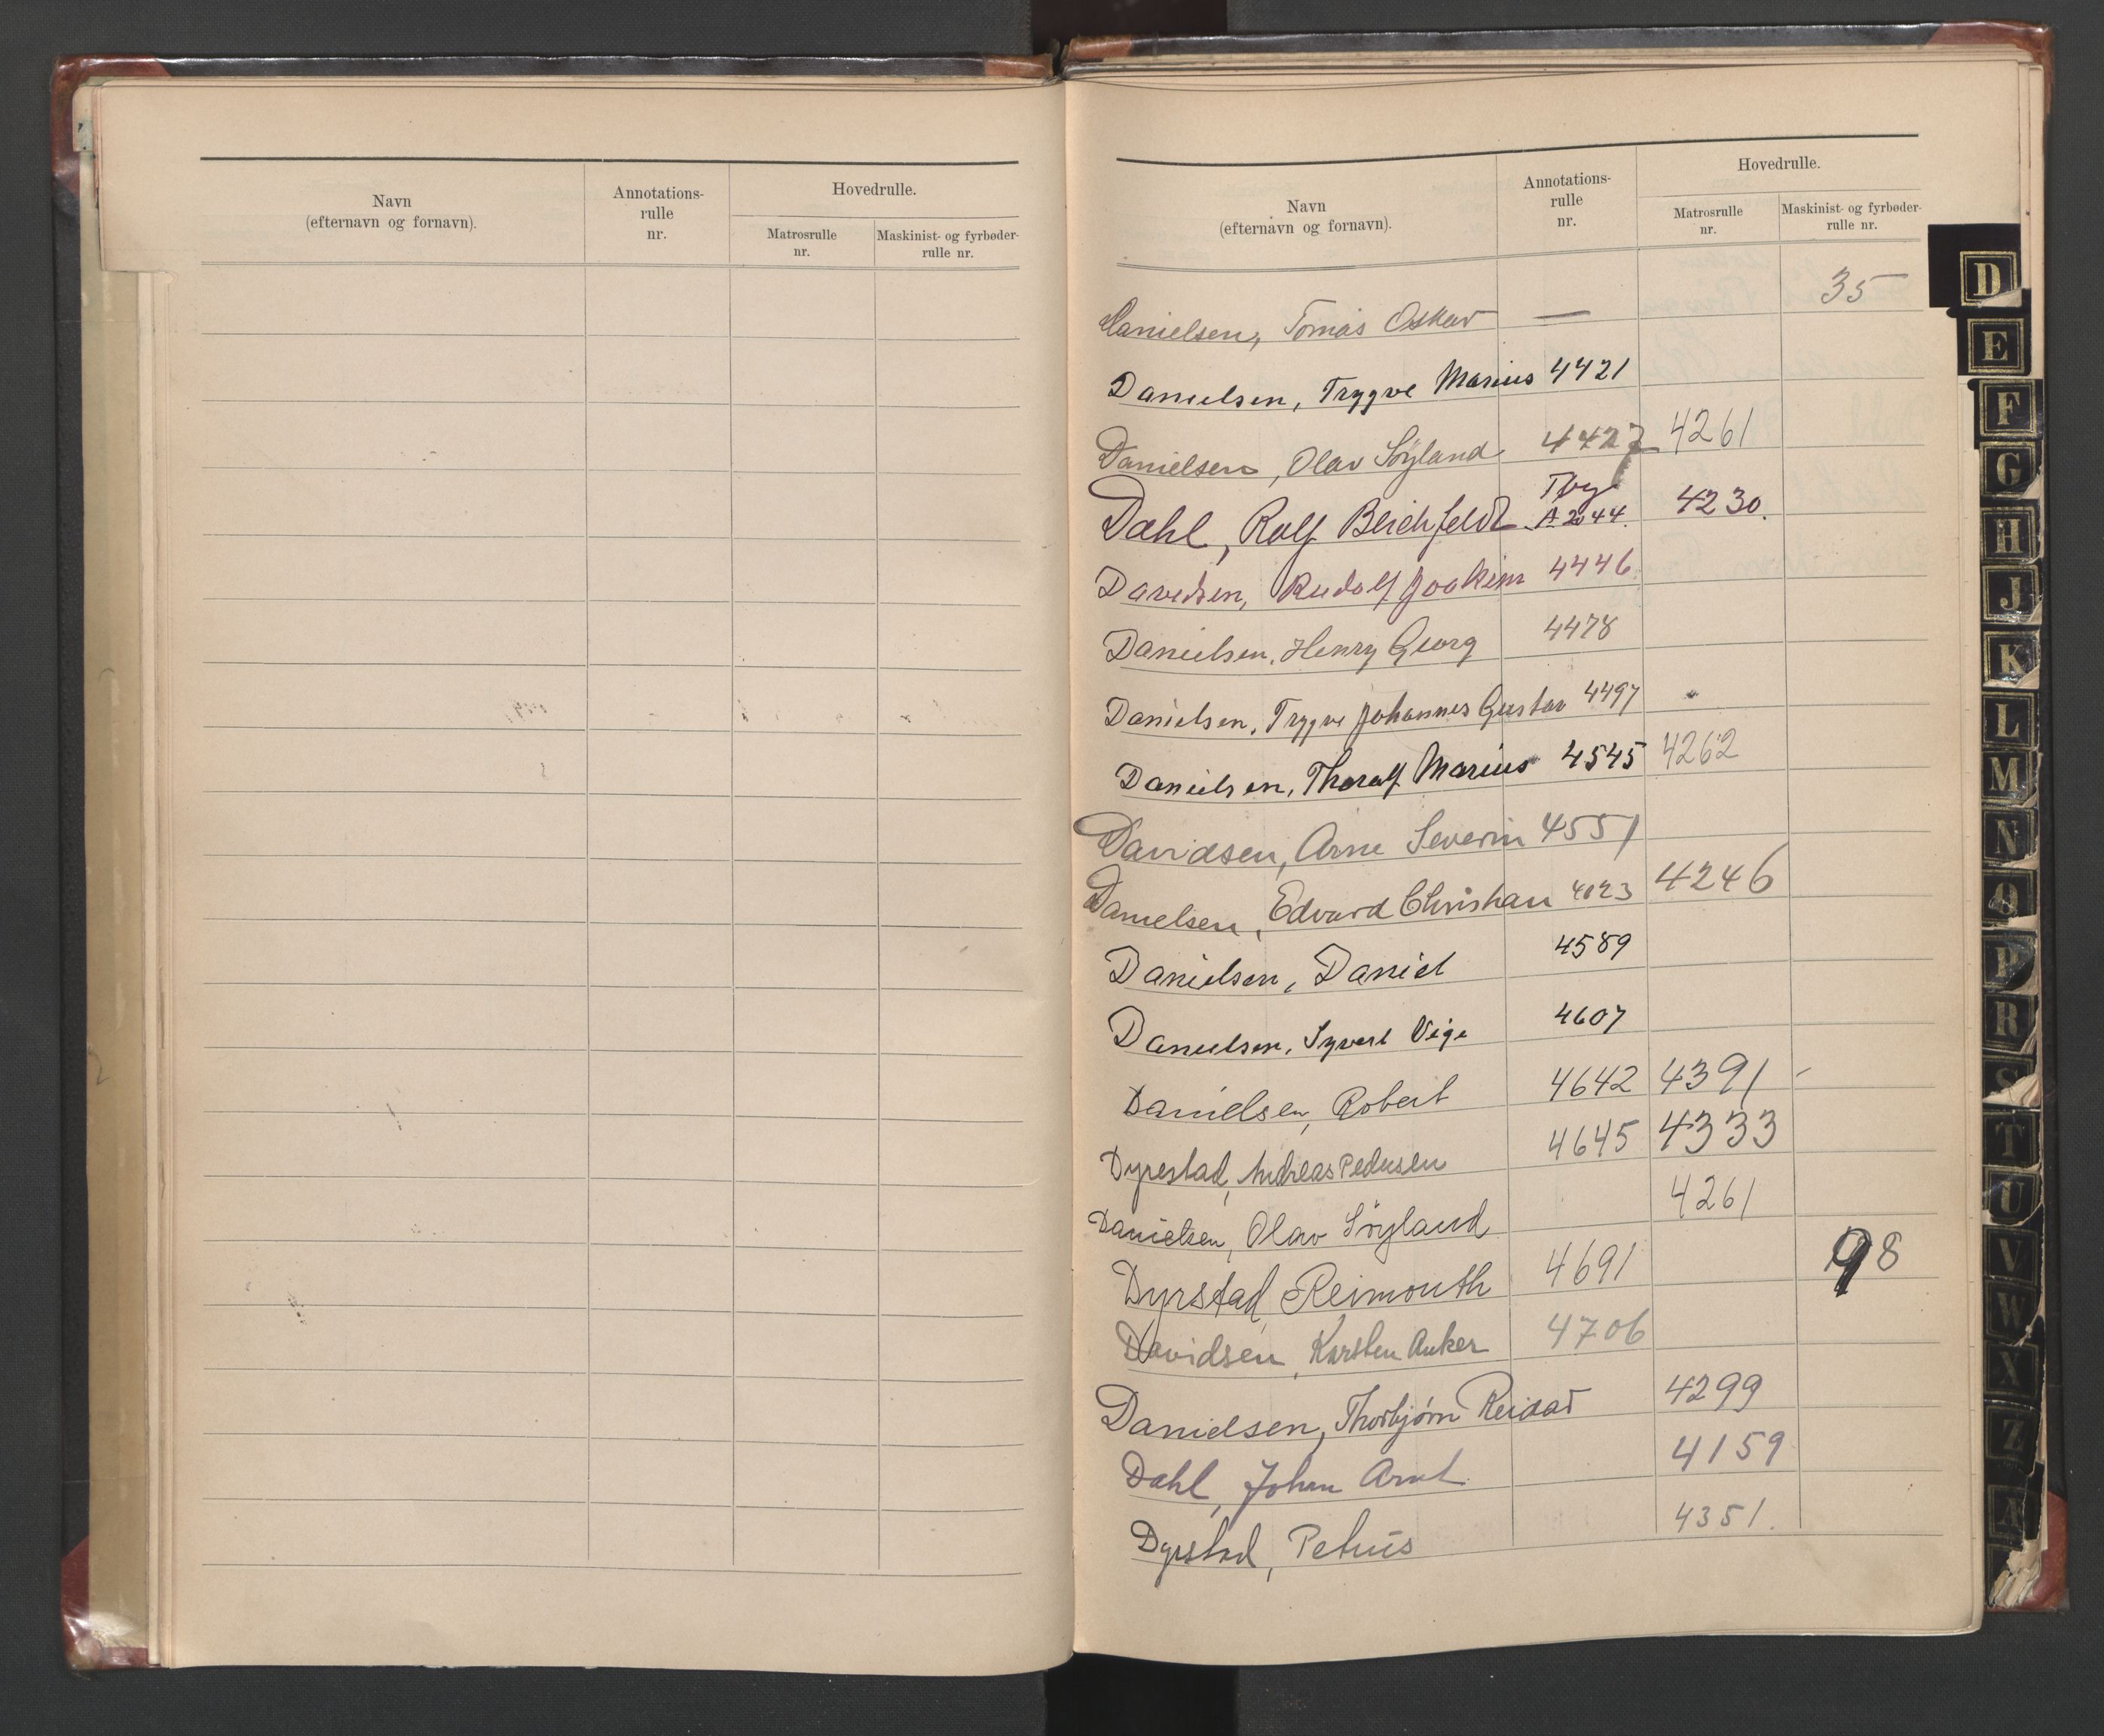 Navn
(efternavn og fornavn).
Annotations-
rulle
nr.
Hovedrulle.
Matrosrulle
nr.
Maskinist- og fyrbøder-
rulle nr.
Navn
(efternavn og fornavn).
Annotations-
rulle
nr.
Hovedrulle.
Matrosrulle
nr.
Maskinist- og fyrbøder-
rulle nr.
Danielsen, Tomas Oskar — 35
Danielsen, Trygve Marius 4421
Danielsen, Olav Söyland 4427 4261
Dahl, Rolf Bleichfeldt A 2044. 4230.
Davidsen, Rudolf Joakim 4446
Danielsen, Henry Georg 4478
Danielsen, Trygve Johannes Gustav 4497 "
Danielsen, Thoralf Marius 4545 4262
Davidsen, Arne Severin 4551
Danielsen, Edvard Christian 4023 4246
Danielsen, Daniel 4589
Danielsen, Syvert Vige 4607
Danielsen, Robert 4642 4391 -
Dyrestad, Andreas Pedersen 4645 4333
Danielsen, Olav Söyland 4261
Dyrstad, Reimouth 4691 98
Davidsen, Karsten Anker 4706
Danielsen, Thorbjørn Reidar 4299
Dahl, Johan Arnt 4159
Dyrstad, Petrus 4351.
D
E
F
G
H
J
K
L
M
N
O
P
R
S
T
U
V
W
X
Z
Æ